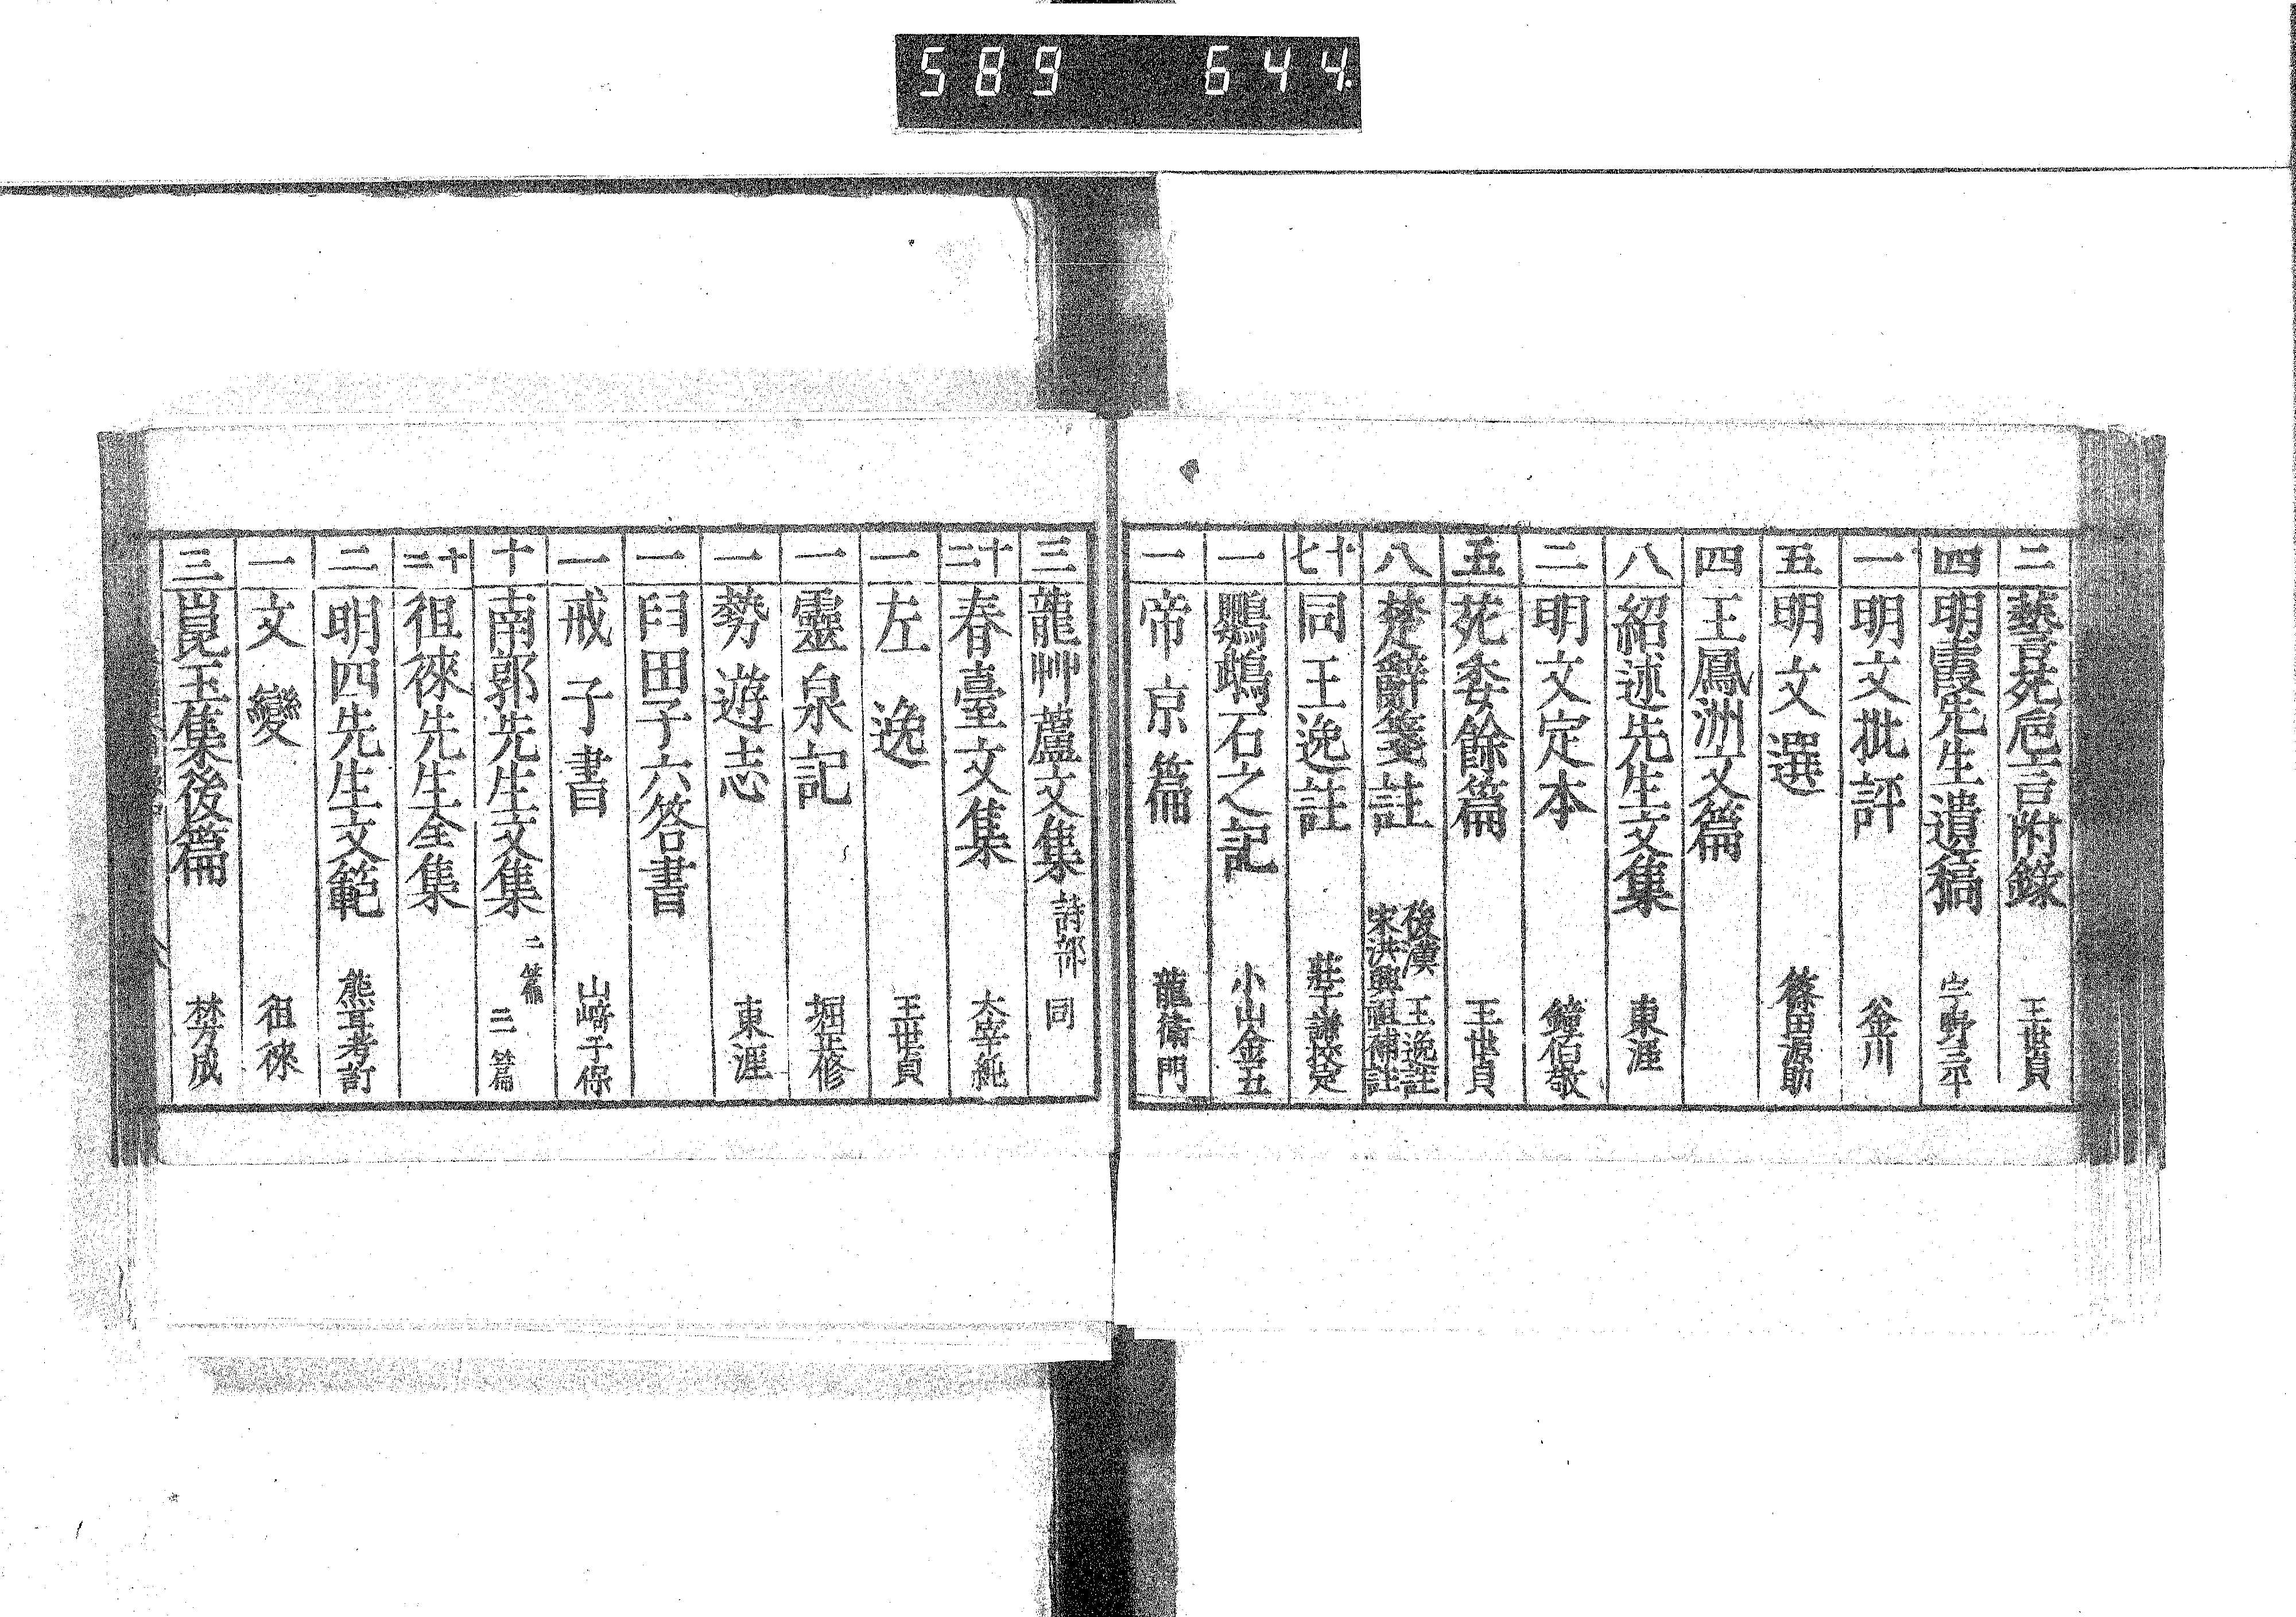 589 644
二 藝苑巵言附錄 王世貞
四 明霞先生遺稿 宇野三平
一 明文批評 金川
五 明文選 篠田源助
四 王鳳洲文篇
八 紹述先生文集 東涯
二 明文定本 鐘伯敬
五 苑委餘篇 王世貞
八 楚辭箋註 後漢 王逸註 宋洪興祖補註
十七 同王逸註 莊子謙校定
一 鸚鵡石之記 小山金五
一 帝京篇 龍衛門
三 龍艸蘆文集 詩部 同
十二 春臺文集 太宰純
一 左逸 王世貞
一 靈泉記 堀正修
一 勢遊志 東涯
一 臼田子六答書
一 戒子書 山﨑子保
十 南郭先生文集 二篇 三篇
十二 徂徠先生全集
二 明四先生文範 熊耳考訂
一 文變 徂徠
三 崑玉集後篇 林方成